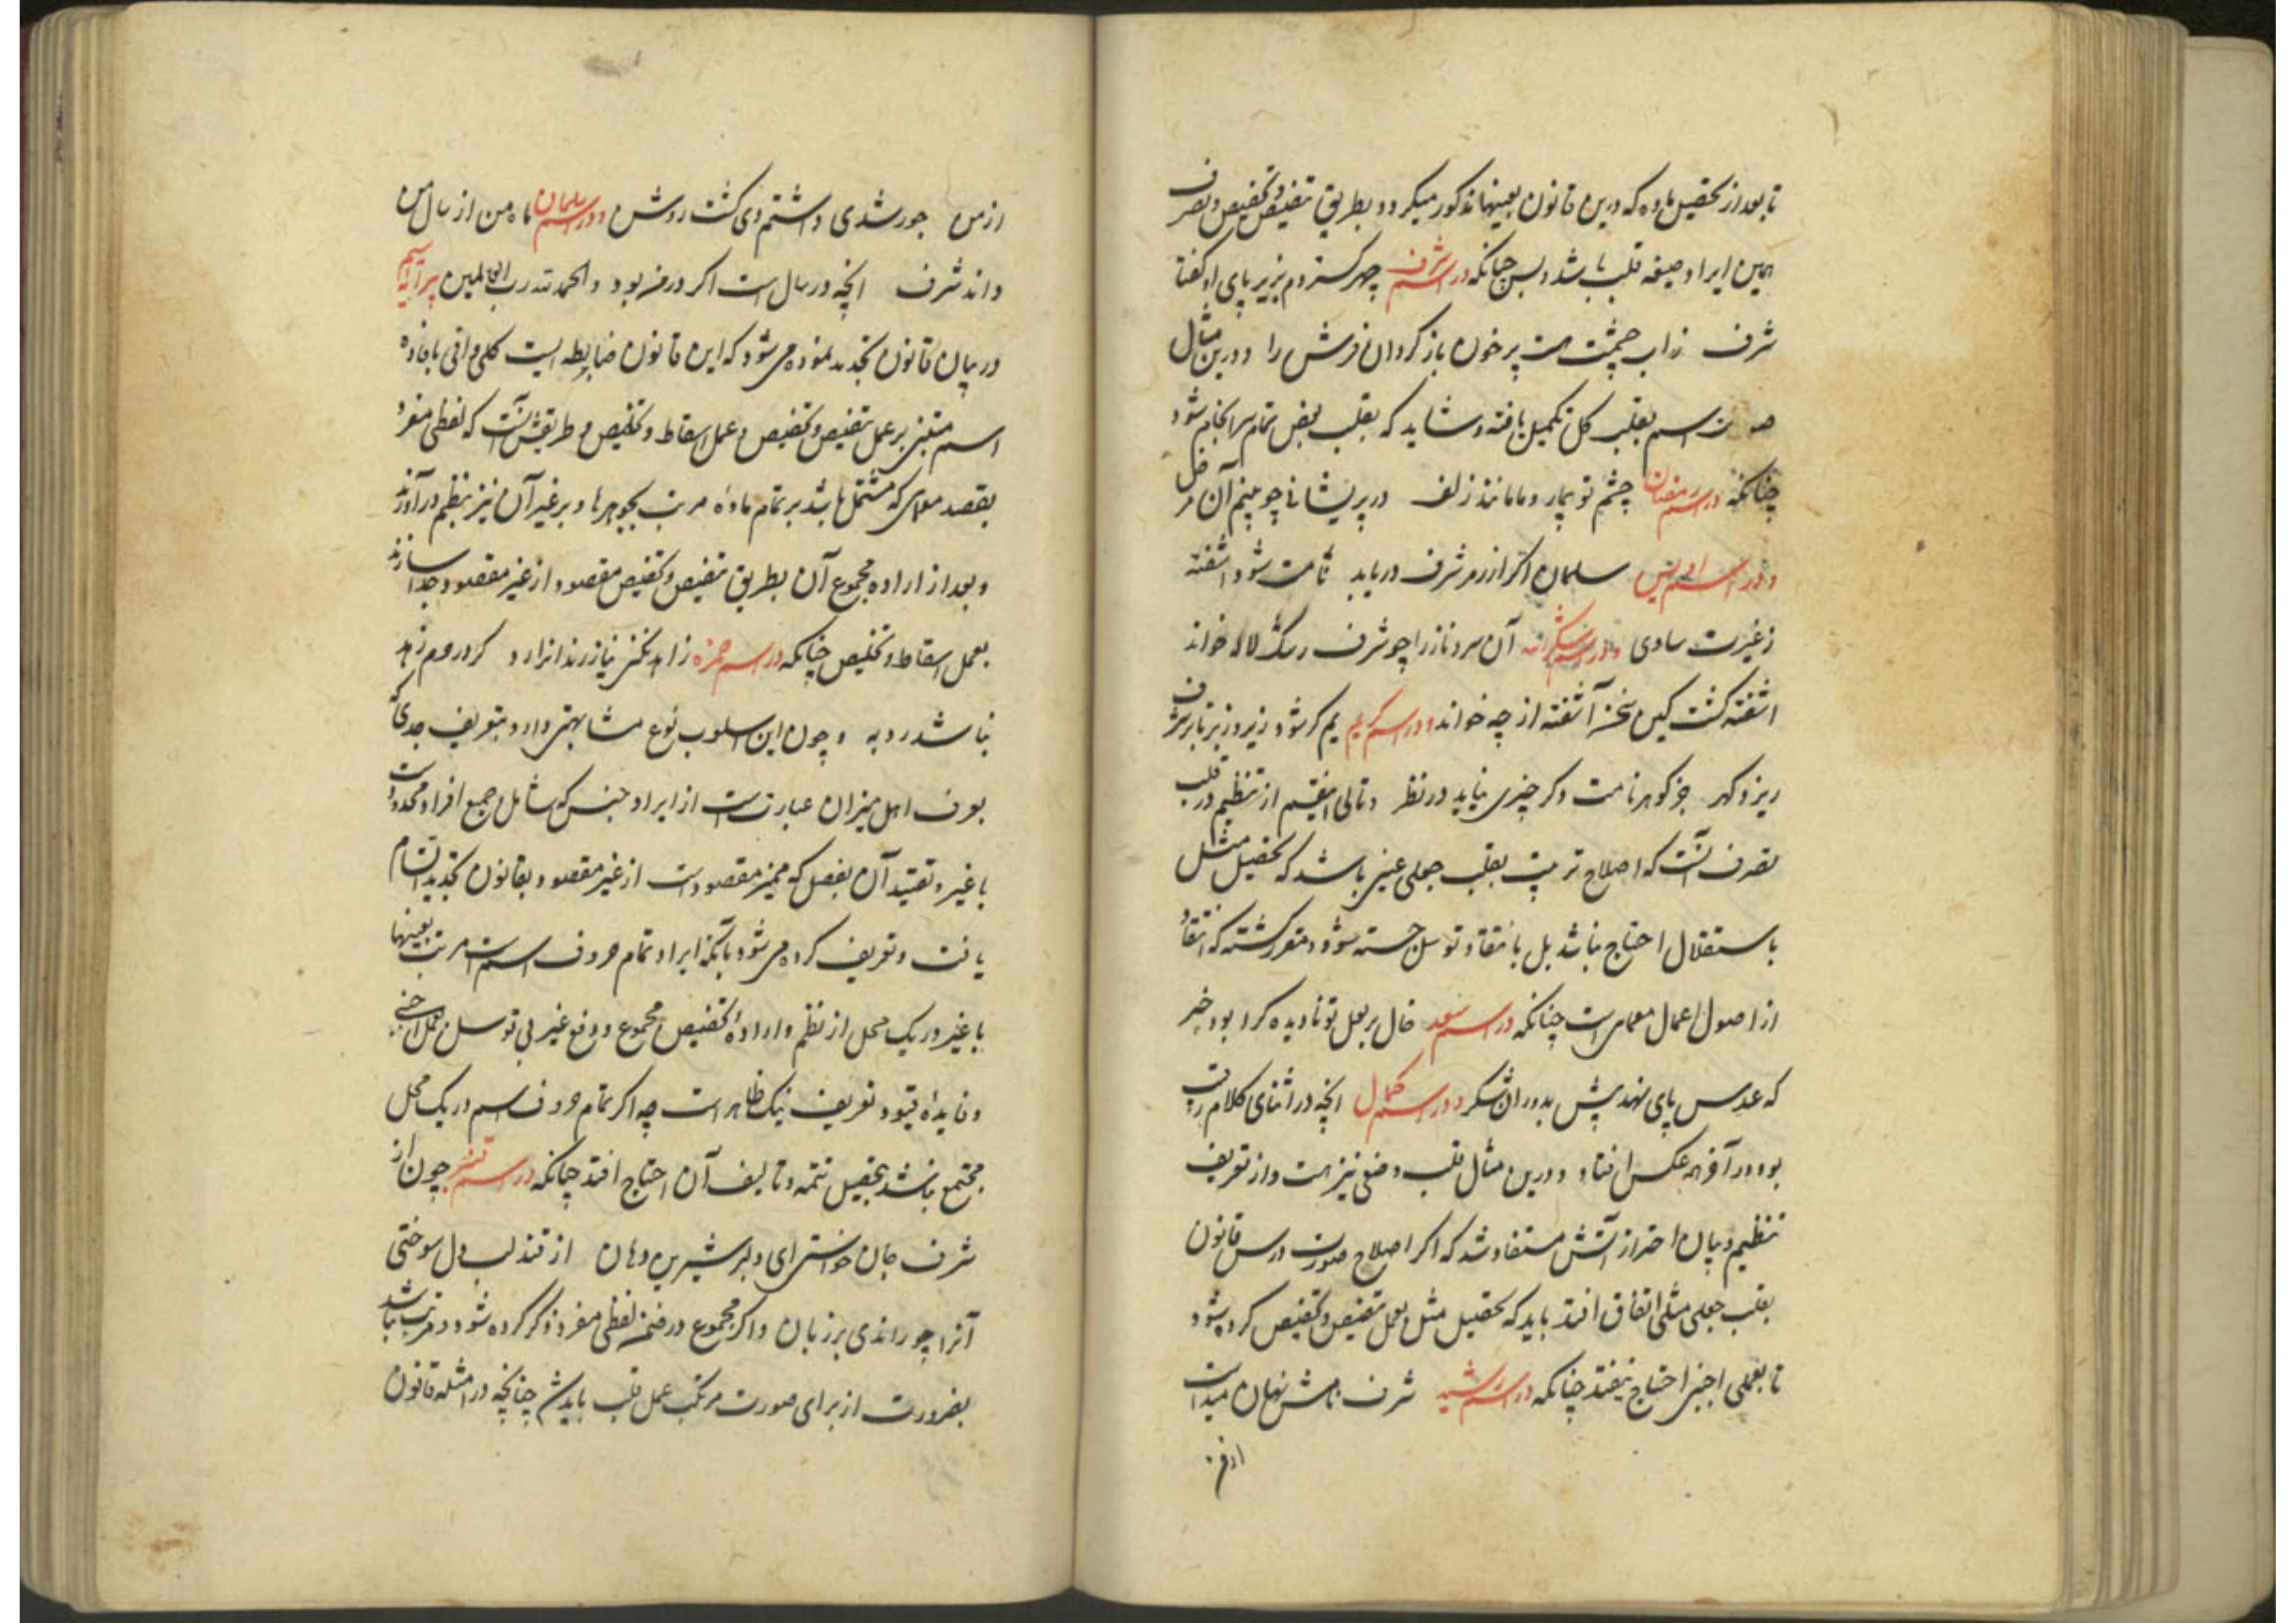 تا بعد از تحصیل ماده که درین قانون بعینها مذکور میکردد بطریق تنقیص و تخصیص و تصرف
همین ایراد صیغه قلب باشد و بس چنانکه در اسم شرف چهر کستردم بزیر پای او کفتا
شرف زاب چشمت هست پر خون باز کردان فرش را و درین مثال
اسم بقلب کل تکمیل یافته و شاید که بقلب بعض تمام سرانجام شود
چنانکه در اسم رمضان چشم تو بیمار و ما مانند زلف در پریشانی چو بینم آن مرض
و در اسم سلمان اکر از رمز شرف دریابد ثابت شود اشفته
ز غیرت ساوی و در اسم آن سرو ناز را چو شرف رشک لاله خواند
اشفته کشت کین سخن آشفته از چه خواند و در اسم کریم یم کر شود زیر و زبر تا بر شرف
ریزد کهر جز کوهر نامت دکر چیزی نیاید در نظر و تالی اقسم از تنظیم در قلب
تصرف آنست که اصلاح ترتیب بقلب جعلی عینی باشد که تحصیل مثل
باستقلال احتیاج نباشد بل بانتقاد توسل جسته شود و مقرر کشته که انتقاد
از اصول اعمال معماست چنانکه در اسم سعد خال بر لعل تو نادیده کرا بود خبر
که عدس پای نهد پیش بدوران شکر و در اسم کمال انچه در اثنای کلام رقیب
بود در آخر همه عکس افتاد و درین مثال قلب وضعی نیز هست و از تعریف
تنظیم و بیان احتراز آتش مستفاد شد که اکر اصلاح صورت درس قانون
بقلب جعلی مثلی اتفاق افتد باید که تحصیل مثل بعمل تنقیص و تخصیص کرده شود
تا بعملی اجنبی احتیاج نیفتد چنانکه در اسم رشید شرف نامش نهان میداشت
از من
از من جور شدی داشتم وی کشت روشن و در اسم سلمان ماه من از سال من
داند شرف انچه در سال است اکر در مه بود والحمد لله رب العالمین
در بیان قانون تحدید نموده می شود که این قانون ضابطه ایست کلی وافی بافاده
اسم مبتنی بر عمل تنقیص و تخصیص و عمل اسقاط و تخلیص و طریقش آنست که لفظی مفرد
بقصد معمای که مشتمل باشد بر تمام ماده مرتب بجوهرها و بر غیر آن نیز بنظم درآورند
و بعد از اراده مجموع آن بطریق تنقیص و تخصیص مقصود از غیر مقصود جدا سازند
بعمل اسقاط و تخلیص چنانکه در اسم حمزه زاهد نکنی نیاز رندانرا رد کر در حرم زهد
نباشد ره به و چون این اسلوب نوع مشابهتی دارد بتعریف حدی که
بعرف اهل میزان عبارتست از ایراد جنس که شامل جمیع افراد محدودست
با غیر و تقیید آن بفصل که ممیز مقصود است از غیر مقصود بقانون تحدید اتسام
یافت و تعریف کرده می شود بآنکه ایراد تمام حروف اسم است مرتب بعینها
با غیر در یک محل از نظم و اراده تخصیص مجموع و دفع غیر بی توسل بعمل اجنبی
و فایده قیود تعریف نیک ظاهر است چه اکر تمام حروف اسم در یک محل
مجتمع نباشد بتحصیل تتمه و تالیف آن احتیاج افتد چنانکه در اسم قنبر چون از
شرف جان خواستی ای دلبر شیرین دهان از قند لب دل سوختی
آنرا چو راندی بر زبان و اکر مجموع در ضمن لفظی مفرد ذکر کرده شود و مرتب نباشد
بضرورت از برای صورت مرتکب عمل قلب باید شد چنانچه در امثله قانون